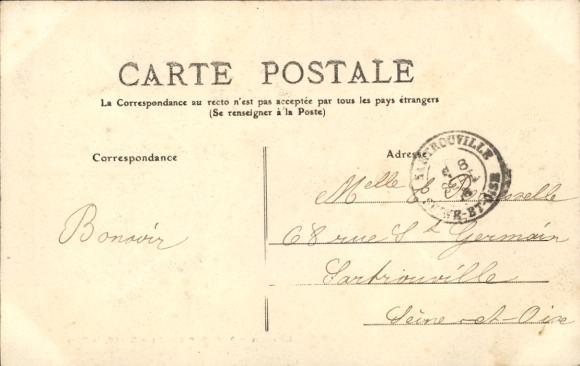 CARTE POSTALE
La Correspondance au recto n'est pas acceptée par tous les pays étrangers
(Se renseigner à la Poste)
Correspondance
Adresse
SARTROUVILLE
SEINE-ET-OISE
Bonsoir
Melle
68 rue St Germain
Sartrouville
Seine-et-Oise